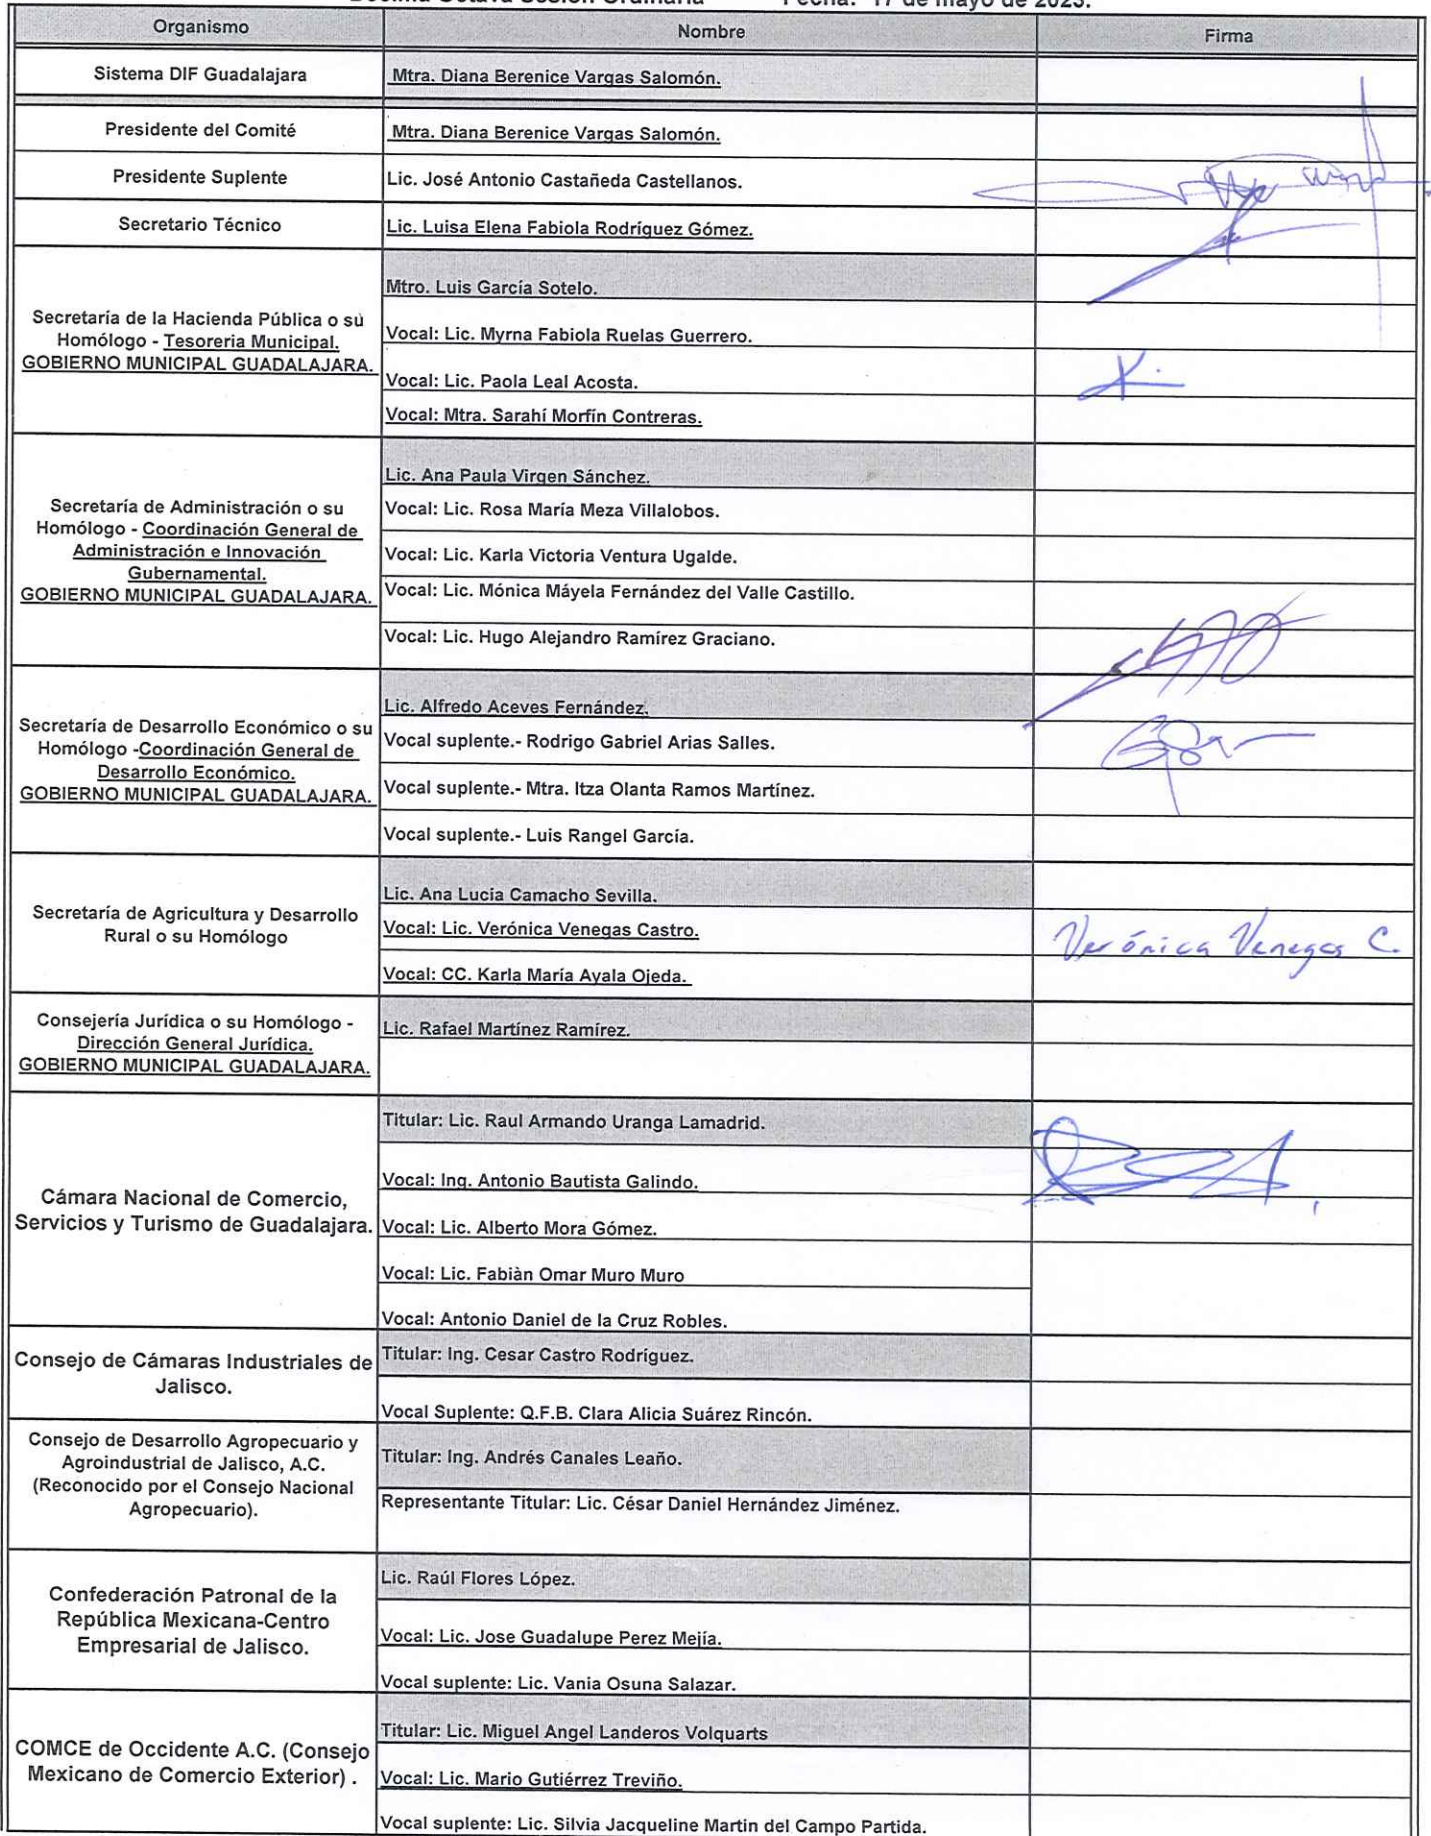 Décima Octava Sesión Ordinaria Fecha: 17 de mayo de 2023.
Organismo Nombre Firma
Sistema DIF Guadalajara Mtra. Diana Berenice Vargas Salomón.
Presidente del Comité Mtra. Diana Berenice Vargas Salomón.
Presidente Suplente Lic. José Antonio Castañeda Castellanos.
Secretario Técnico Lic. Luisa Elena Fabiola Rodríguez Gómez.
Secretaría de la Hacienda Pública o su
Homólogo - Tesoreria Municipal.
GOBIERNO MUNICIPAL GUADALAJARA.
Mtro. Luis García Sotelo.
Vocal: Lic. Myrna Fabiola Ruelas Guerrero.
Vocal: Lic. Paola Leal Acosta.
Vocal: Mtra. Sarahí Morfín Contreras.
Secretaría de Administración o su
Homólogo - Coordinación General de
Administración e Innovación
Gubernamental.
GOBIERNO MUNICIPAL GUADALAJARA.
Lic. Ana Paula Virgen Sánchez.
Vocal: Lic. Rosa María Meza Villalobos.
Vocal: Lic. Karla Victoria Ventura Ugalde.
Vocal: Lic. Mónica Máyela Fernández del Valle Castillo.
Vocal: Lic. Hugo Alejandro Ramírez Graciano.
Secretaría de Desarrollo Económico o su
Homólogo -Coordinación General de
Desarrollo Económico.
GOBIERNO MUNICIPAL GUADALAJARA.
Lic. Alfredo Aceves Fernández.
Vocal suplente.- Rodrigo Gabriel Arias Salles.
Vocal suplente.- Mtra. Itza Olanta Ramos Martínez.
Vocal suplente.- Luis Rangel García.
Secretaría de Agricultura y Desarrollo
Rural o su Homólogo
Lic. Ana Lucía Camacho Sevilla.
Vocal: Lic. Verónica Venegas Castro. Verónica Venegas C.
Vocal: CC. Karla María Ayala Ojeda.
Consejería Jurídica o su Homólogo -
Dirección General Jurídica.
GOBIERNO MUNICIPAL GUADALAJARA.
Lic. Rafael Martínez Ramírez.
Cámara Nacional de Comercio,
Servicios y Turismo de Guadalajara.
Titular: Lic. Raul Armando Uranga Lamadrid.
Vocal: Ing. Antonio Bautista Galindo.
Vocal: Lic. Alberto Mora Gómez.
Vocal: Lic. Fabiàn Omar Muro Muro
Vocal: Antonio Daniel de la Cruz Robles.
Consejo de Cámaras Industriales de
Jalisco.
Titular: Ing. Cesar Castro Rodríguez.
Vocal Suplente: Q.F.B. Clara Alicia Suárez Rincón.
Consejo de Desarrollo Agropecuario y
Agroindustrial de Jalisco, A.C.
(Reconocido por el Consejo Nacional
Agropecuario).
Titular: Ing. Andrés Canales Leaño.
Representante Titular: Lic. César Daniel Hernández Jiménez.
Confederación Patronal de la
República Mexicana-Centro
Empresarial de Jalisco.
Lic. Raúl Flores López.
Vocal: Lic. Jose Guadalupe Perez Mejía.
Vocal suplente: Lic. Vania Osuna Salazar.
COMCE de Occidente A.C. (Consejo
Mexicano de Comercio Exterior) .
Titular: Lic. Miguel Angel Landeros Volquarts
Vocal: Lic. Mario Gutiérrez Treviño.
Vocal suplente: Lic. Silvia Jacqueline Martin del Campo Partida.